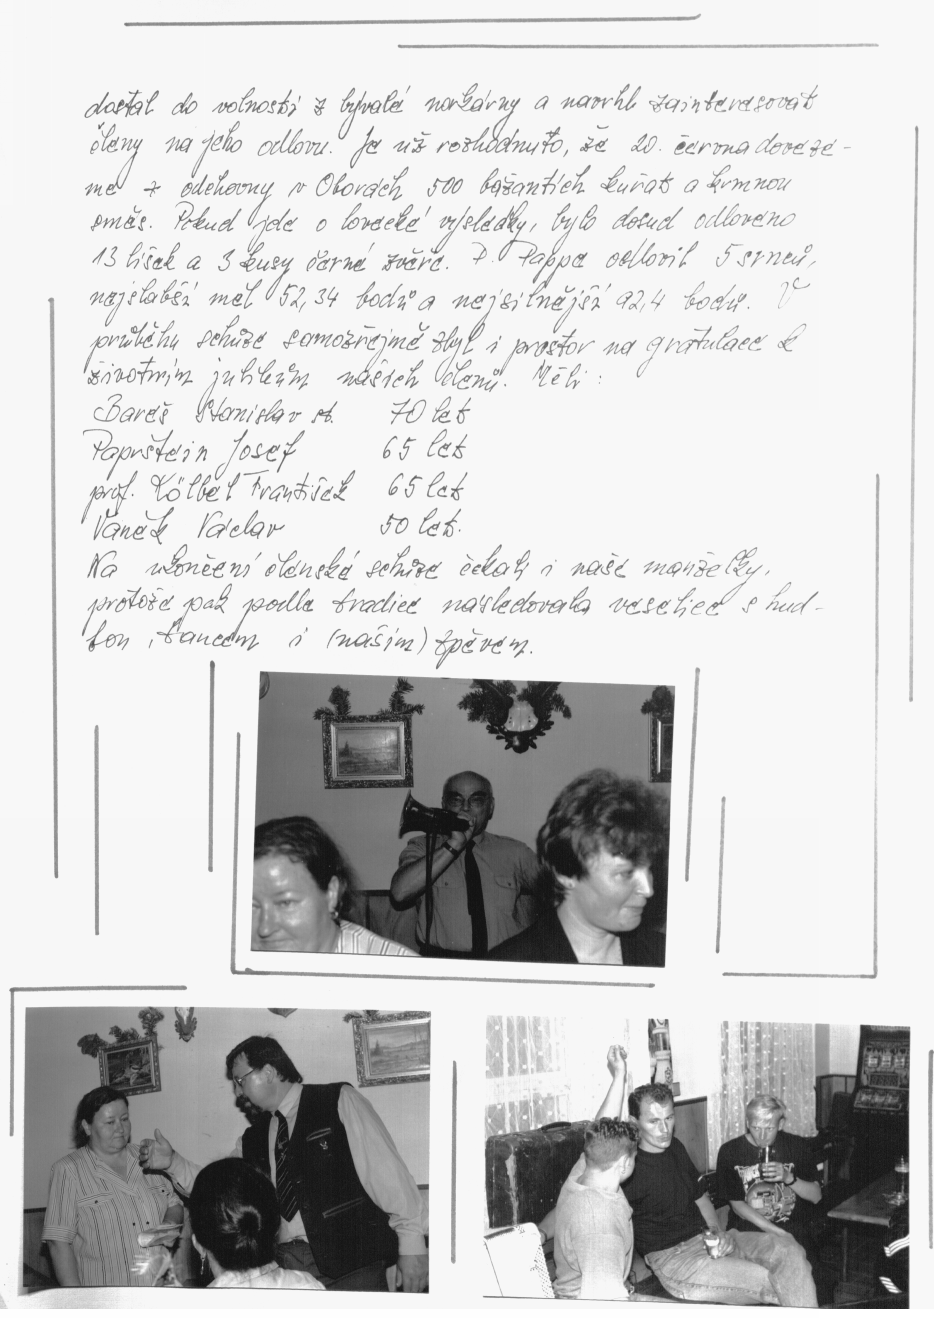 dostal do volnosti z bývalé norkárny a navrhl zainteresovat
členy na jeho odlovu. Je už rozhodnuto, že 20. června doveze-
me z odchovny v Oborách 500 bažantích kuřat a krmnou
směs. Pokud jde o lovecké výsledky, bylo dosud odloveno
13 lišek a 3 kusy černé zvěře. P. Pappa odlovil 5 srnců,
nejslabší měl 52,34 bodů a nejsilnější 92,4 bodů. V
průběhu schůze samozřejmě zbyl i prostor na gratulace k
životním jubileím našich členů. Měli:
Bareš Stanislav st. 70 let
Paprštein Josef 65 let
prof. Kölbel František 65 let
Vaněk Václav 50 let.
Na ukončení členské schůze čekali i naše manželky,
protože pak podle tradice následovala veselice s hud-
bou, tancem i (naším) zpěvem.